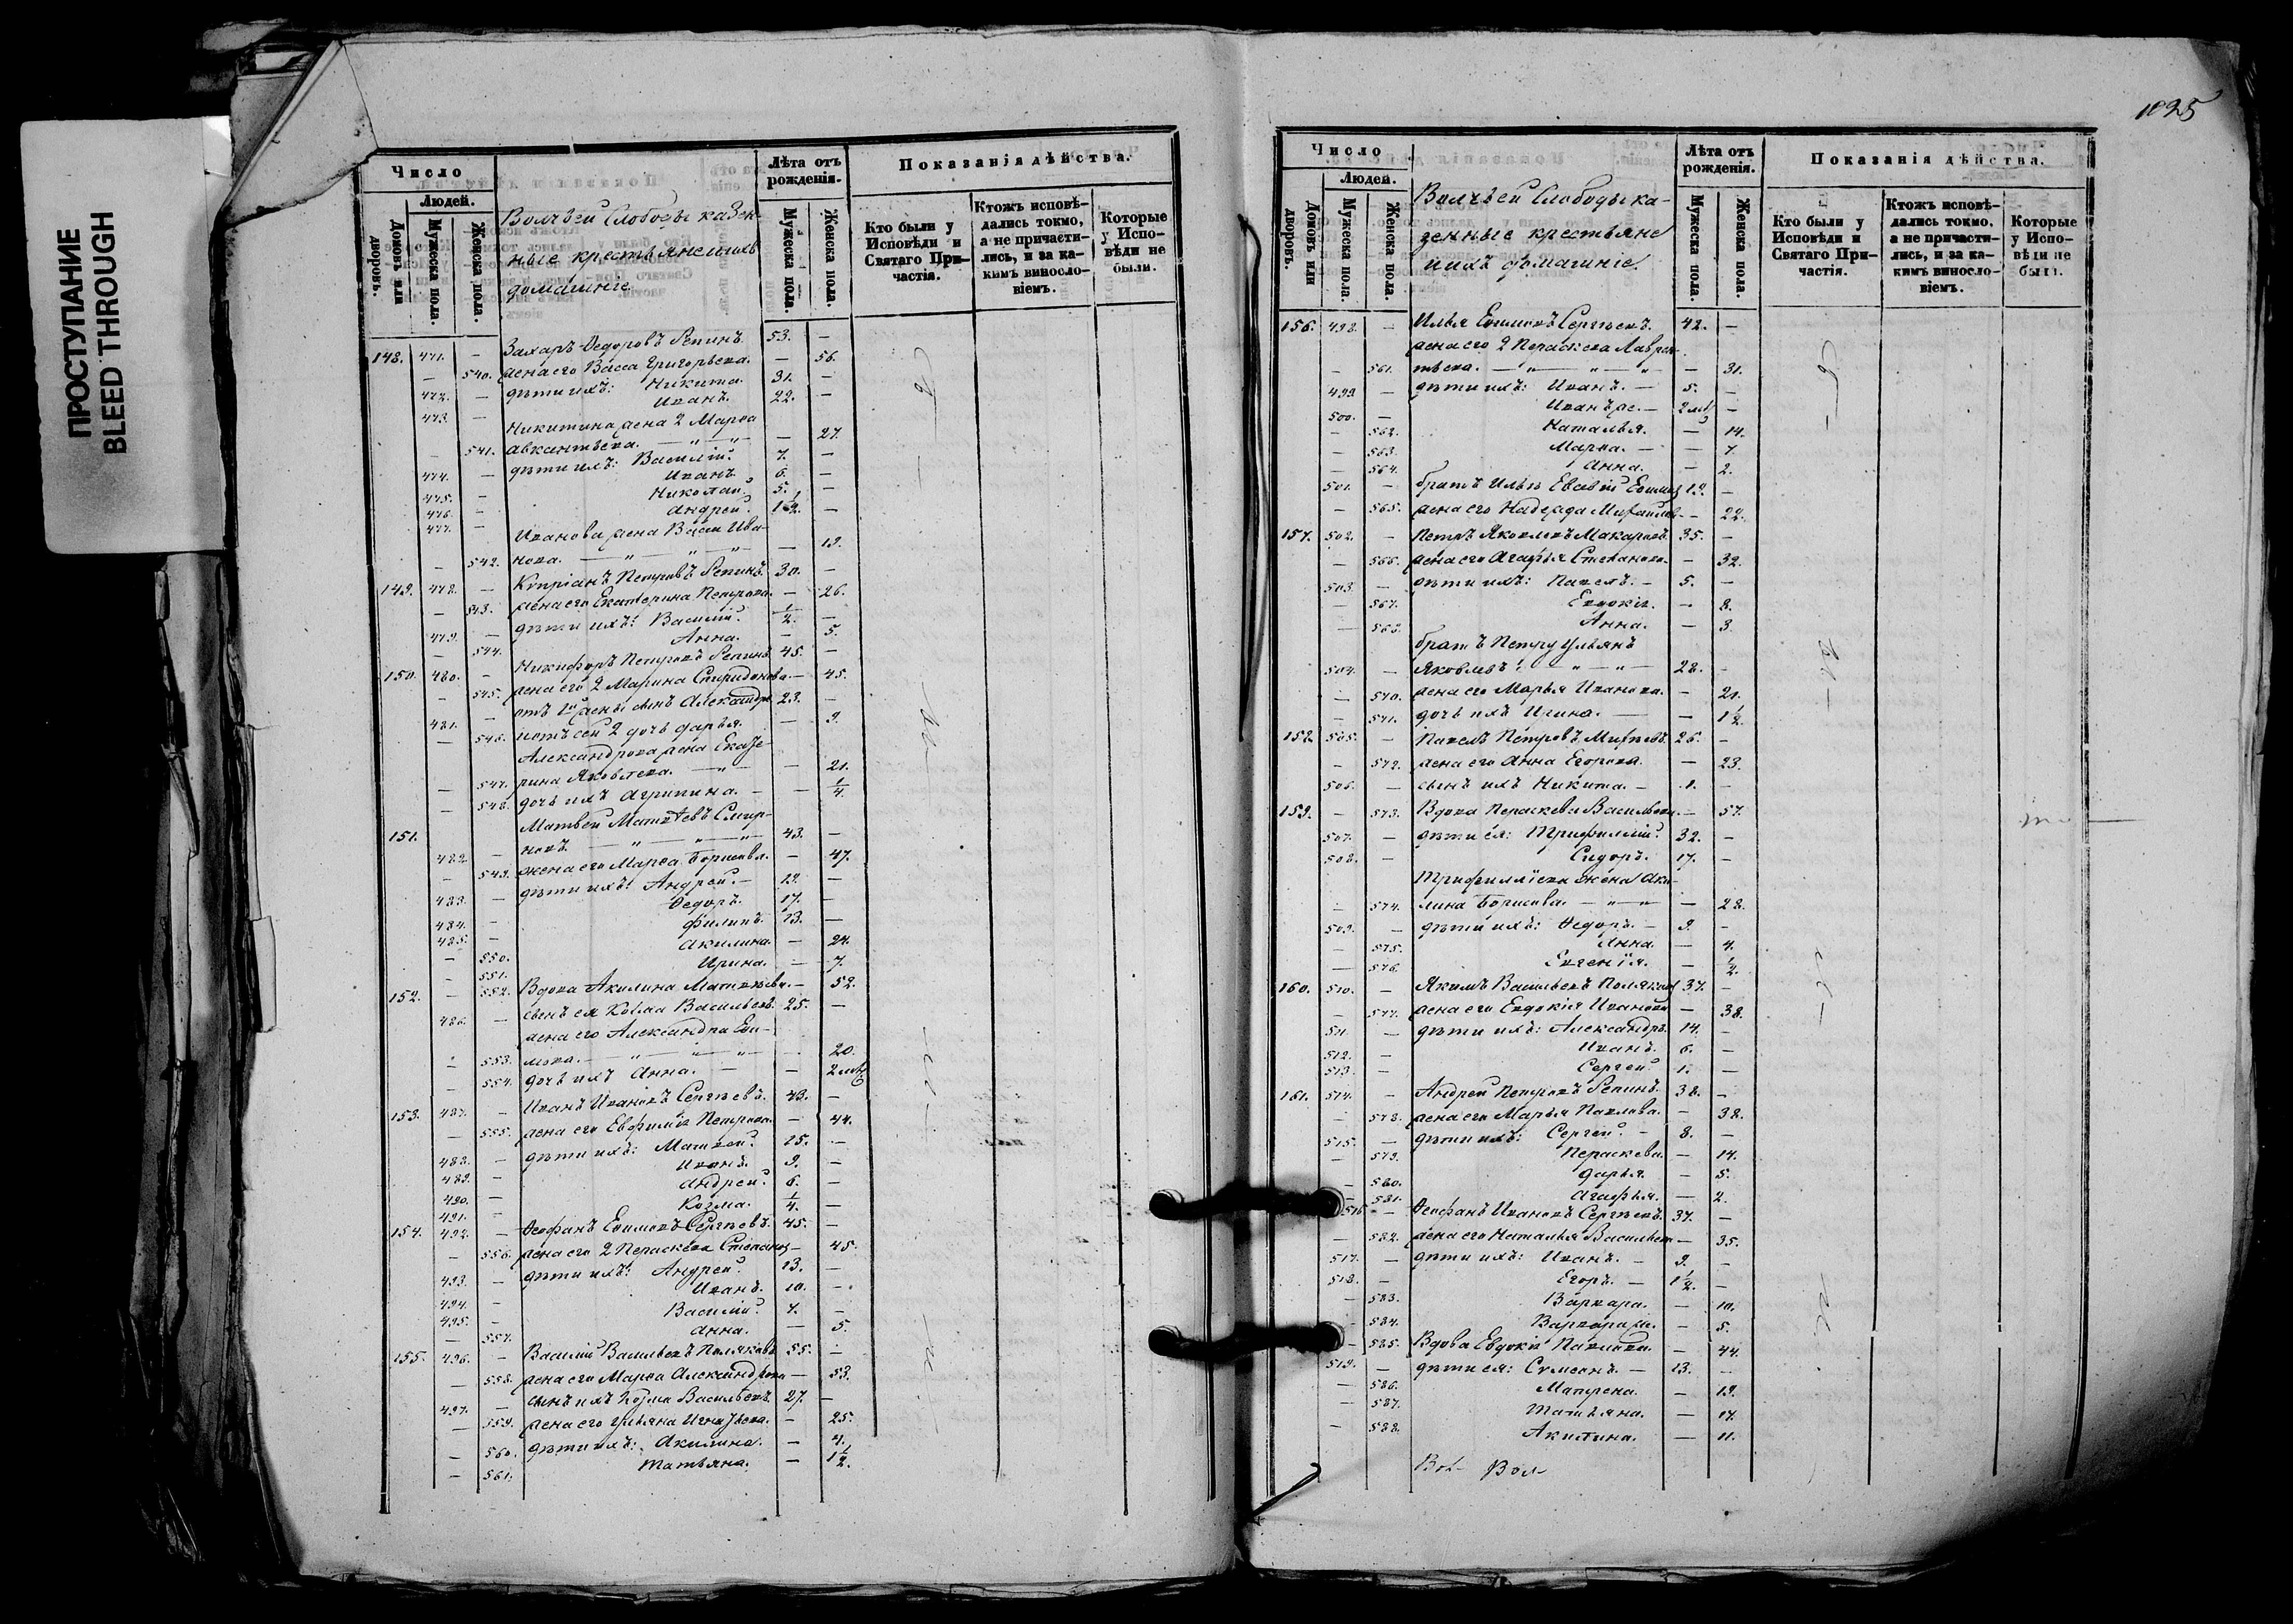 ПРОСТУПАНИЕ
BLEED THROUGH
Число
Людей.
Домовъ или дворовъ.
Мужеска пола.
Женска пола.
Волчьей Слободы казен-
ные крестьяне и ихъ
домашніе
Лѣта отъ рожденія.
Мужеска пола.
Женска пола.
Показанія дѣйства.
Кто были у Исповѣди и Святаго Причастія.
Ктожъ исповѣдались токмо, а не причастились, и за какимъ винословіемъ.
Которые у Исповѣди не были.
148. 471. — Захаръ Ѳедоровъ Репинъ 53. —
— 540. жена его Васса Григорьева. — 56.
472. — дѣти ихъ: Никита. 31. —
473. — Иванъ. 22. —
Никитина жена 2 Марѳа
— 541. — 27.
474. — дѣти ихъ: Василій. 7. —
475. — Иванъ. 6. —
476. — Николай. 5. —
477. — Андрей. 1 1/2. —
Иванова жена Васса Ива-
— 542. нова. — 19.
149. 478. — Кипріанъ Петровъ Репинъ. 30. —
— 543. жена его Екатерина Петрова. — 26.
479. — дѣти ихъ: Василій. 1/2. —
— 544. Анна. — 5.
150. 480. — Никифоръ Петровъ Репинъ 45. —
— 545. жена его 2 Марина Спиридонова — 45.
481. — отъ 1й жены сынъ Александръ 23. —
— 546. и отъ сей 2 дочь Дарья. — 9.
Александрова жена Екате-
— 547. рина Яковлева. — 21.
— 548. дочь ихъ Агрипина. — 1/4.
Матвей Матвѣевъ Смир-
151. 482. — новъ 43. —
— 549. жена его Марѳа Борисова. — 47.
483. — дѣти ихъ: Андрей. — 19. —
484. — Ѳедоръ. 17. —
485. — Филипъ. 13. —
— 550. Акилина. — 24.
— 551. Ирина. — 7.
152. — 552. Вдова Акилина Матвѣева. — 52.
486. — сынъ ея Козма Васильевъ. 25. —
жена его Александра Ефи-
— 553. мова. — 20.
— 554. дочь ихъ Анна. —
153. 487. — Иванъ Ивановъ Сергѣевъ. 43. —
— 555. жена его Евфимія Петрова. — 44.
488. — дѣти ихъ: Матвей. 15. —
489. — Иванъ. 9. —
490. — Андрей. 6. —
491. — Козма. 1/4. —
154. 492. — Ѳеофанъ Ефимовъ Сергѣевъ. 45. —
— 556. жена его 2 Пераскева Степанов — 45.
493. — дѣти ихъ: Андрей. 13. —
494. — Иванъ. 10. —
495. — Василій. 7. —
— 557. Анна. — 5.
155. 496. — Василій Васильевъ Поляковъ 55. —
— 558. жена его Марѳа Александрова — 53.
497. — сынъ ихъ Козма Васильевъ. 27. —
— 559. жена его Ульяна Игнатьева. — 25.
— 560. дѣти ихъ: Акилина. — 4.
— 561. Татьяна. — 1 1/2.
1025
Число
Людей.
Домовъ или дворовъ.
Мужеска пола.
Женска пола.
Волчьей Слободы ка-
зенные крестьяне
и ихъ домашніе.
Лѣта отъ рожденія.
Мужеска пола.
Женска пола.
Показанія дѣйства.
Кто были у Исповѣди и Святаго Причастія.
Ктожъ исповѣдались токмо, а не причастились, и за какимъ винословіемъ.
Которые у Исповѣди не были.
156. 498. — Илья Ефимовъ Сергѣевъ. 42. —
жена его 2 Пераскева Лаврен-
— 561. тьева. — 31.
499. — дѣти ихъ: Иванъ. — 5. —
500. — Иванъ же. —
— 562. Наталья. — 14.
— 563. Марѳа. — 7.
— 564. Анна. — 2.
501. — братъ Ильи Евсевій Ефимов 19. —
— 565. жена его Надежда Михайлов — 22.
157. 502. — Петръ Яковлевъ Макаровъ. 35. —
— 566. жена его Агафья Степанова. — 32.
503. — дѣти ихъ: Павелъ. — 5. —
— 567. Евдокія. — 8.
— 568. Анна. — 3.
братъ Петру Ульянъ
504. — Яковлевъ. 28. —
— 570. жена его Марья Иванова. — 21.
— 571. дочь ихъ Ирина. — 1 1/2.
158. 505. — Павелъ Петровъ 26. —
— 572. жена его Анна Егорова. — 23.
506. — сынъ ихъ Никита. — 1. —
159. — 573. Вдова Пераскева Васильева. — 57.
507. — дѣти ея: Трифиллій. 32. —
508. — Сидоръ. 17. —
Трифилліева жена Аки-
— 574. лина Борисова. — 28.
509. — дѣти ихъ: Ѳедоръ. — 9. —
— 575. Анна. — 4.
— 576. Евгенія. — 1/2.
160. 510. — Якимъ Васильевъ Поляков 37. —
— 577. жена его Евдокія Иванова — 38.
511. — дѣти ихъ: Александръ. 14. —
512. — Иванъ. 6. —
513. — Сергей. 1. —
161. 514. — Андрей Петровъ Репинъ. 38. —
— 578. жена его Марья Павлова. — 38.
515. — дѣти ихъ: Сергей. — 8. —
— 579. Пераскева. — 14.
— 580. Дарья. — 5.
— 581. Агафья. — 2.
516. — Ѳеофанъ Ивановъ Сергѣевъ. 37. —
— 582. жена его Наталья Васильев — 35.
517. — дѣти ихъ: Иванъ. — 9. —
518. — Егоръ. — 1 1/2. —
— 583. Варвара. — 10.
— 584. Варвара же. — 5.
— 585. Вдова Евдокія Павлова. — 44.
519. — дѣти ея: Сѵмеонъ. — 13. —
— 586. Матрена. — 19.
— 587. Татьяна. — 17.
— 588. Акилина. — 11.